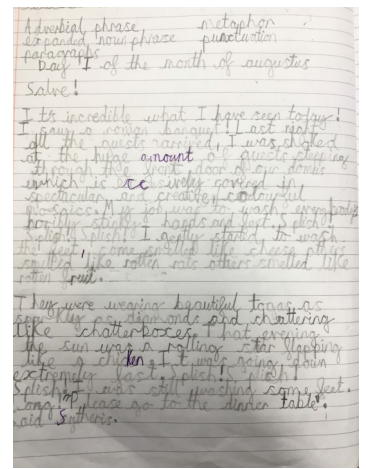 Adverbial phrase metaphor
expanded noun phrase punctuation
paragraphs
Day I of the month of augustus
Salve!
It's incredible what I have seen today!
I saw a roman banquet! Last night
all the guests I was
at the huge amount of guests stepping
through the front door of our domus
which is covered in
spectacular and creative, colourful
My job was to wash
horribly stinky hands and
Splish! Splish! I gently started to wash
the feet, some smelled like cheese others
smelled like rotten rats others smelled like
rotten fruit.
They were wearing beautiful togas as
as diamonds and chattering
like chatterboxes. That evening
the sun was a rolling star
like a It was going down
extremely fast. Splish! Splish!
Splish! I was still washing some feet.
please go to the dinner table"
said